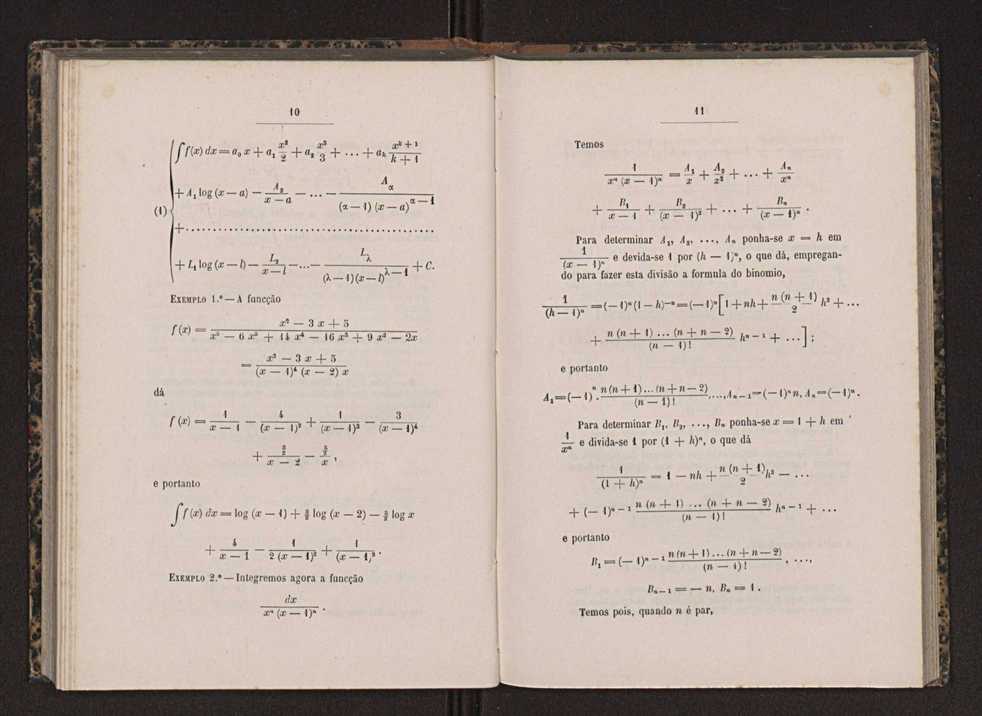 10
∫ f(x) dx = a₀ x + a₁ x²/2 + a₂ x³/3 + ... + aₖ x^(k+1)/(k + 1)
+ A₁ log (x — a) — A₂/(x — a) — ... — A_α/((α — 1) (x — a)^(α — 1))
(1)
+ ........................................
+ L₁ log (x — l) — L₂/(x — l) — ... — L_λ/((λ — 1) (x — l)^(λ — 1)) + C.
EXEMPLO 1.º — A funcção
f (x) = (x² — 3 x + 5)/(x⁶ — 6 x⁵ + 14 x⁴ — 16 x³ + 9 x² — 2x)
= (x² — 3 x + 5)/((x — 1)⁴ (x — 2) x)
dá
f (x) = 1/(x — 1) — 4/(x — 1)² + 1/(x — 1)³ — 3/(x — 1)⁴
+ (3/2)/(x — 2) — (5/2)/x ,
e portanto
∫ f (x) dx = log (x — 1) + 3/2 log (x — 2) — 5/2 log x
+ 4/(x — 1) — 1/(2 (x — 1)²) + 1/(x — 1)³ .
EXEMPLO 2.º — Integremos agora a funcção
dx/(xⁿ (x — 1)ⁿ) .
11
Temos
1/(xⁿ (x — 1)ⁿ) = A₁/x + A₂/x² + ... + Aₙ/xⁿ
+ B₁/(x — 1) + B₂/(x — 1)² + ... + Bₙ/(x — 1)ⁿ .
Para determinar A₁, A₂, ..., Aₙ ponha-se x = h em
1/(x — 1)ⁿ e devida-se 1 por (h — 1)ⁿ, o que dá, empregan-
do para fazer esta divisão a formula do binomio,
1/(h — 1)ⁿ = (—1)ⁿ (1 — h)⁻ⁿ = (—1)ⁿ [1 + nh + n (n + 1)/2 h² + ...
+ n (n + 1) ... (n + n — 2)/(n — 1)! hⁿ⁻¹ + ...] ;
e portanto
A₁ = (—1)ⁿ . n (n + 1) ... (n + n — 2)/(n — 1)! , ..., Aₙ₋₁ = (—1)ⁿ n, Aₙ = (—1)ⁿ.
Para determinar B₁, B₂, ..., Bₙ ponha-se x = 1 + h em
1/xⁿ e divida-se 1 por (1 + h)ⁿ, o que dá
1/(1 + h)ⁿ = 1 — nh + n (n + 1)/2 h² — ...
+ (— 1)ⁿ⁻¹ n (n + 1) ... (n + n — 2)/(n — 1)! hⁿ⁻¹ + ...
e portanto
B₁ = (— 1)ⁿ⁻¹ n (n + 1) ... (n + n — 2)/(n — 1)! , ...,
Bₙ₋₁ = — n, Bₙ = 1 .
Temos pois, quando n é par,